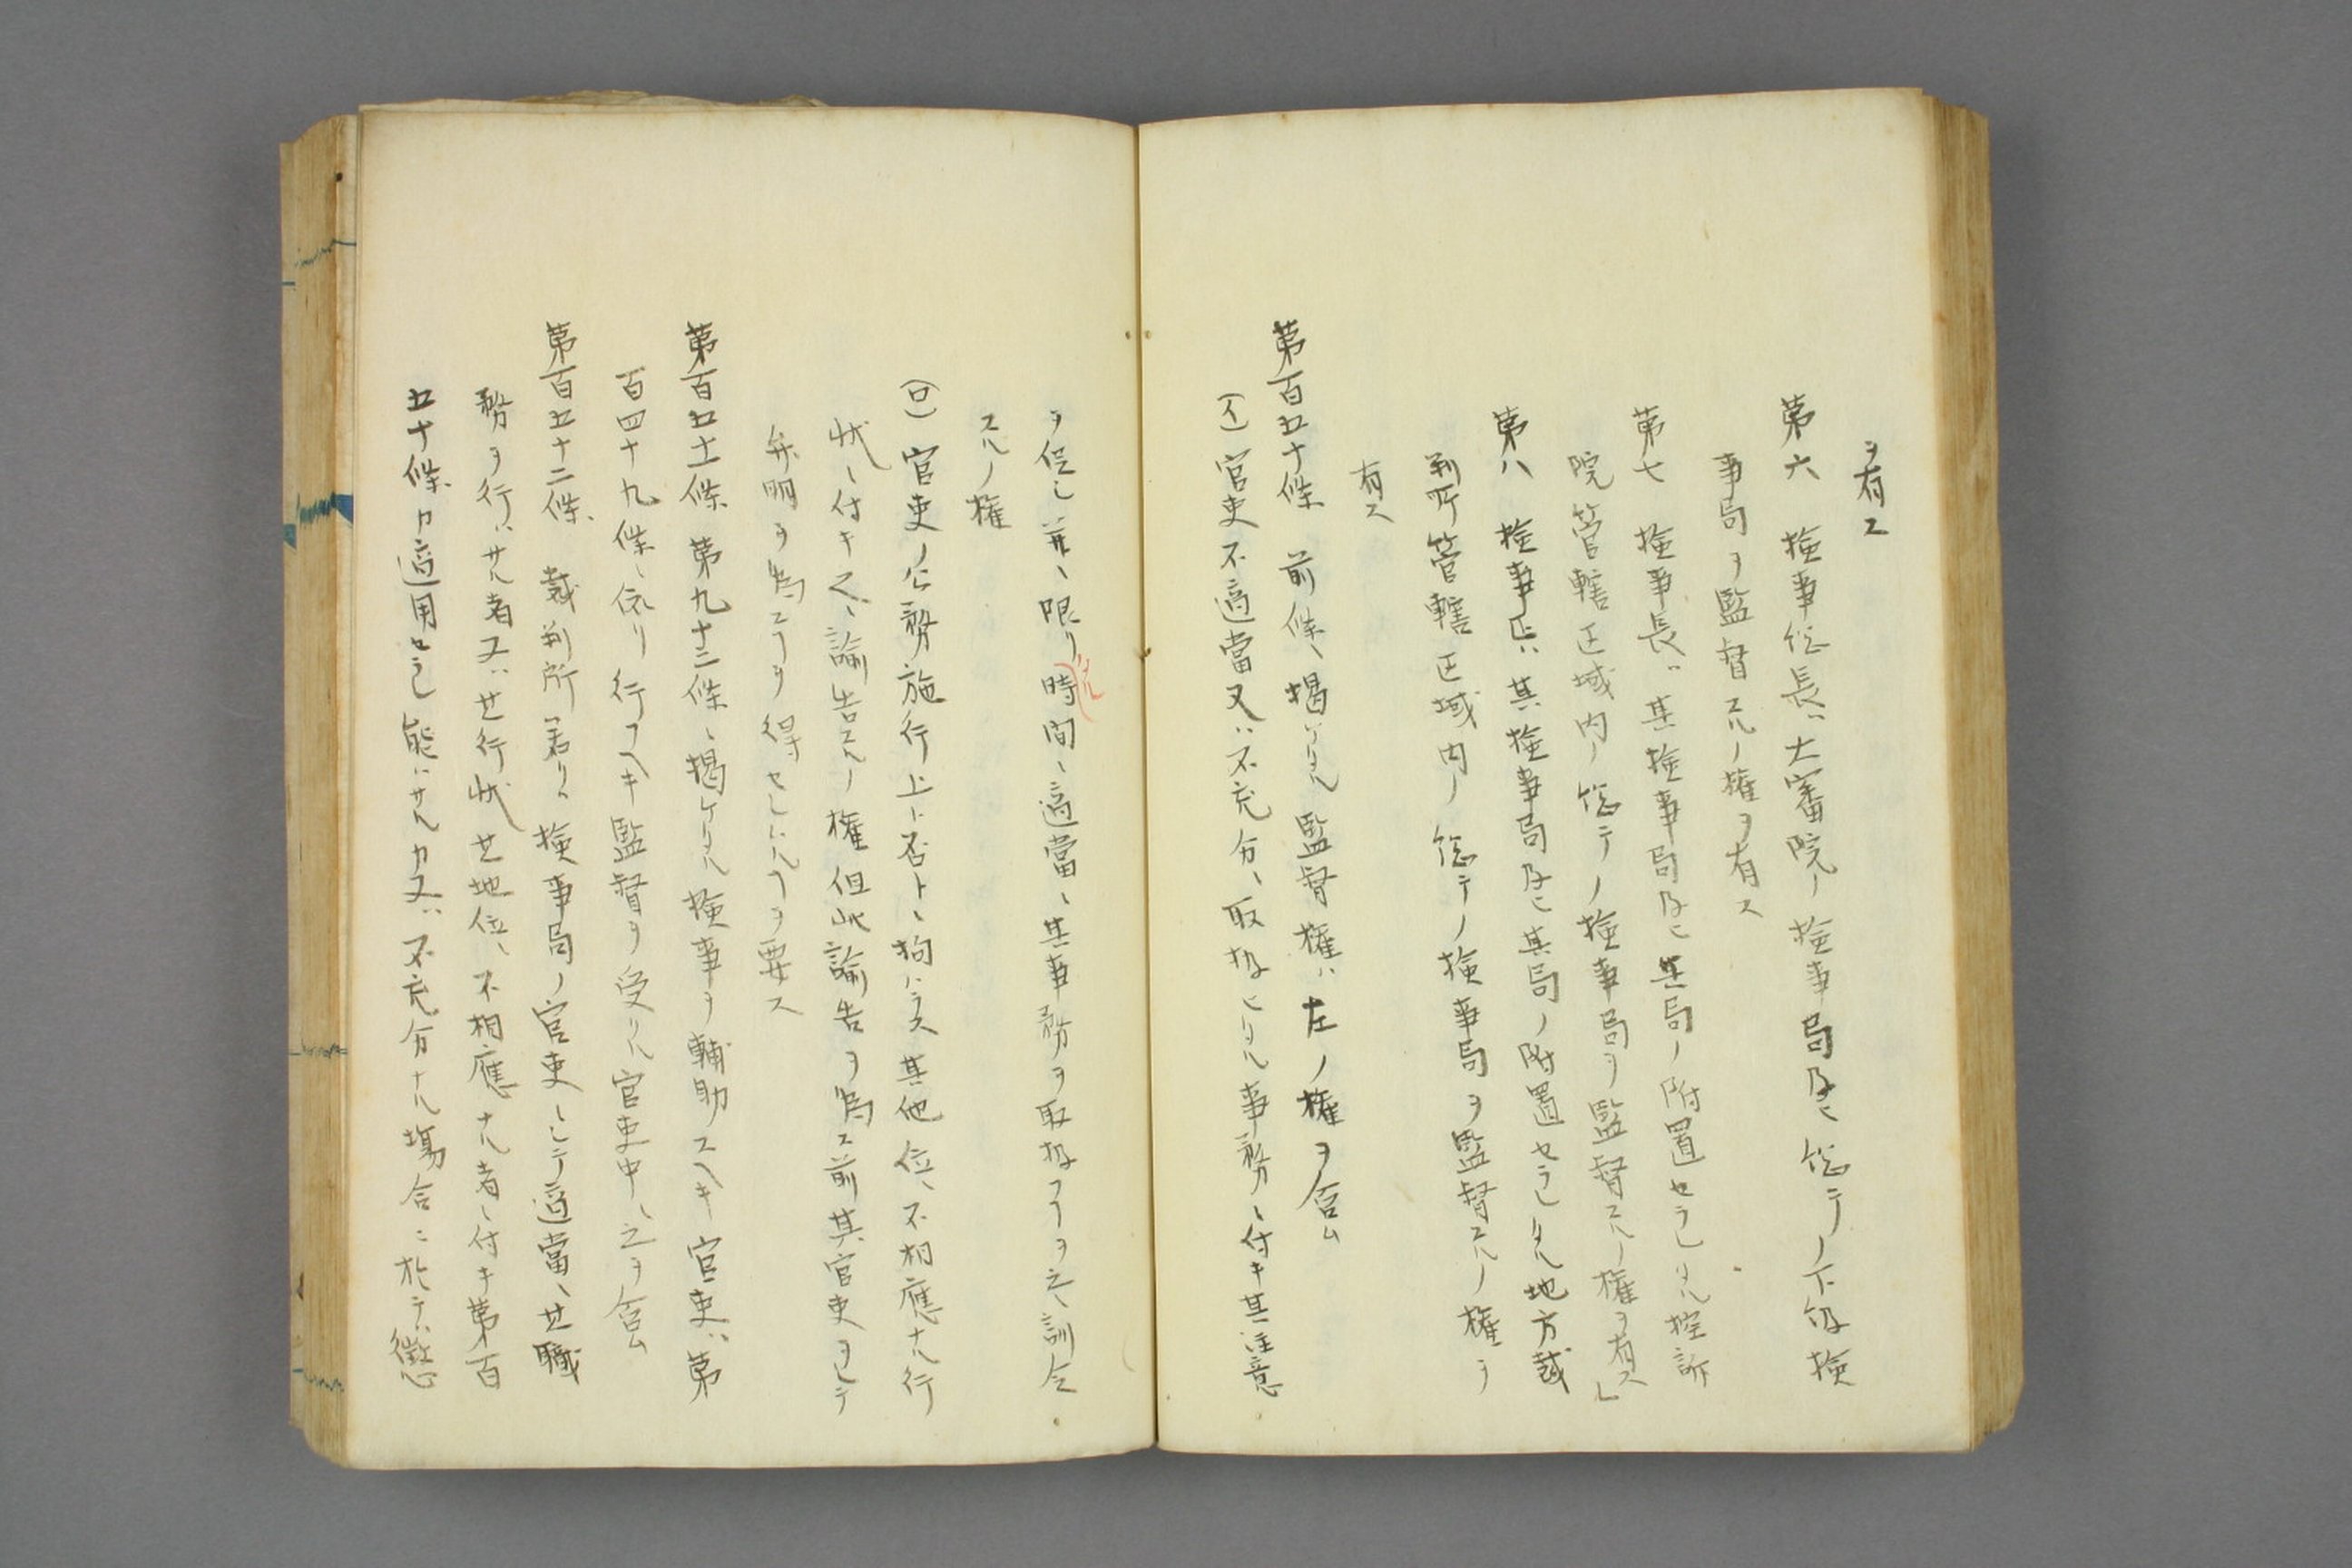 ヲ有ス
第六 検事総長ハ大審院ノ検事局及ヒ総テノ下級検
事局ヲ監督スルノ権ヲ有ス
第七 検事長ハ其検事局及ヒ其局ノ附置セラレタル控訴
院管轄区域内ノ総テノ検事局ヲ監督スルノ権ヲ有ス
第八 検事正ハ其検事局及ヒ其局ノ附置セラレタル地方裁
判所管轄区域内ノ総テノ検事局ヲ監督スルノ権ヲ
有ス
第百五十條 前條ニ掲ケタル監督権ハ左ノ権ヲ含ム
(イ)官吏不適當又ハ不充分ニ取扱ヒタル事務ニ付キ其注意
ヲ促シ並ニ限リタル時間ニ適當ニ其事務ヲ取扱フヿヲ之ニ訓令
スルノ権
(ロ)官吏ノ公務施行上ト否トニ拘ハラス其他位ニ不相應ナル行
状ニ付キ之ニ諭告スルノ権但此諭告ヲ為ス前其官吏ヲシテ
弁明ヲ為スヿヲ得セシムルヿヲ要ス
第百五十一條 第九十三條ニ掲ケタル検事ヲ輔助スヘキ官吏ハ第
百四十九條ニ依リ行フヘキ監督ヲ受クル官吏中ニ之ヲ含ム
第百五十二條 裁判所若クハ検事局ノ官吏ニシテ適當ニ其職
務ヲ行ハサル者又ハ其行状其地位ニ不相應ナル者ニ付キ第百
五十條カ適用セラレ能ハサルカ又ハ不充分ナル場合ニ於テハ懲